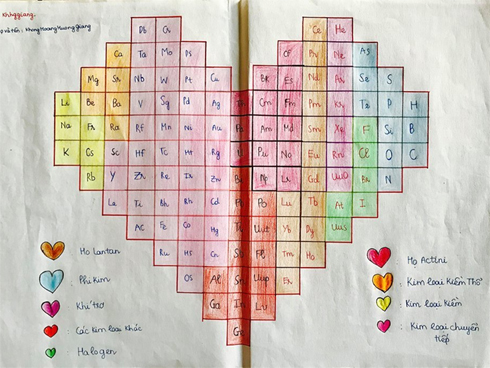 Db Cr Ce He
Ca Ta Mo Ds Cf Pr Ne As
Mg Sr Nb W Pt Cu Bk Es Nd Ar Se S
Li Be Ba V Sg Pd Ag Cm Fm Pm Kr Te P H
Na Fr Ra Rf Mn Ni Au Am Md Sm Xe F Si B
K Cs Sc Hf Tc Rg Pu No Eu Rn Cl O C
Rb Y Zr Re Ir Zn Np Lr Gd UuO Br N
La Ti Bh Rh Cd Pb Lu Tb At I
Ac Fe Co Hg Uut Yb Dy Uus
Ru Fl Tm Ho
Os Al Sn Uup Er
Ga In Liv
Ge
Họ Lantan
Phi Kim
Khí trơ
Các Kim loại Khác
Halogen
Họ Actini
: Kim loại Kiềm Thổ
: Kim loại Kiềm
: Kim loại chuyển
tiếp